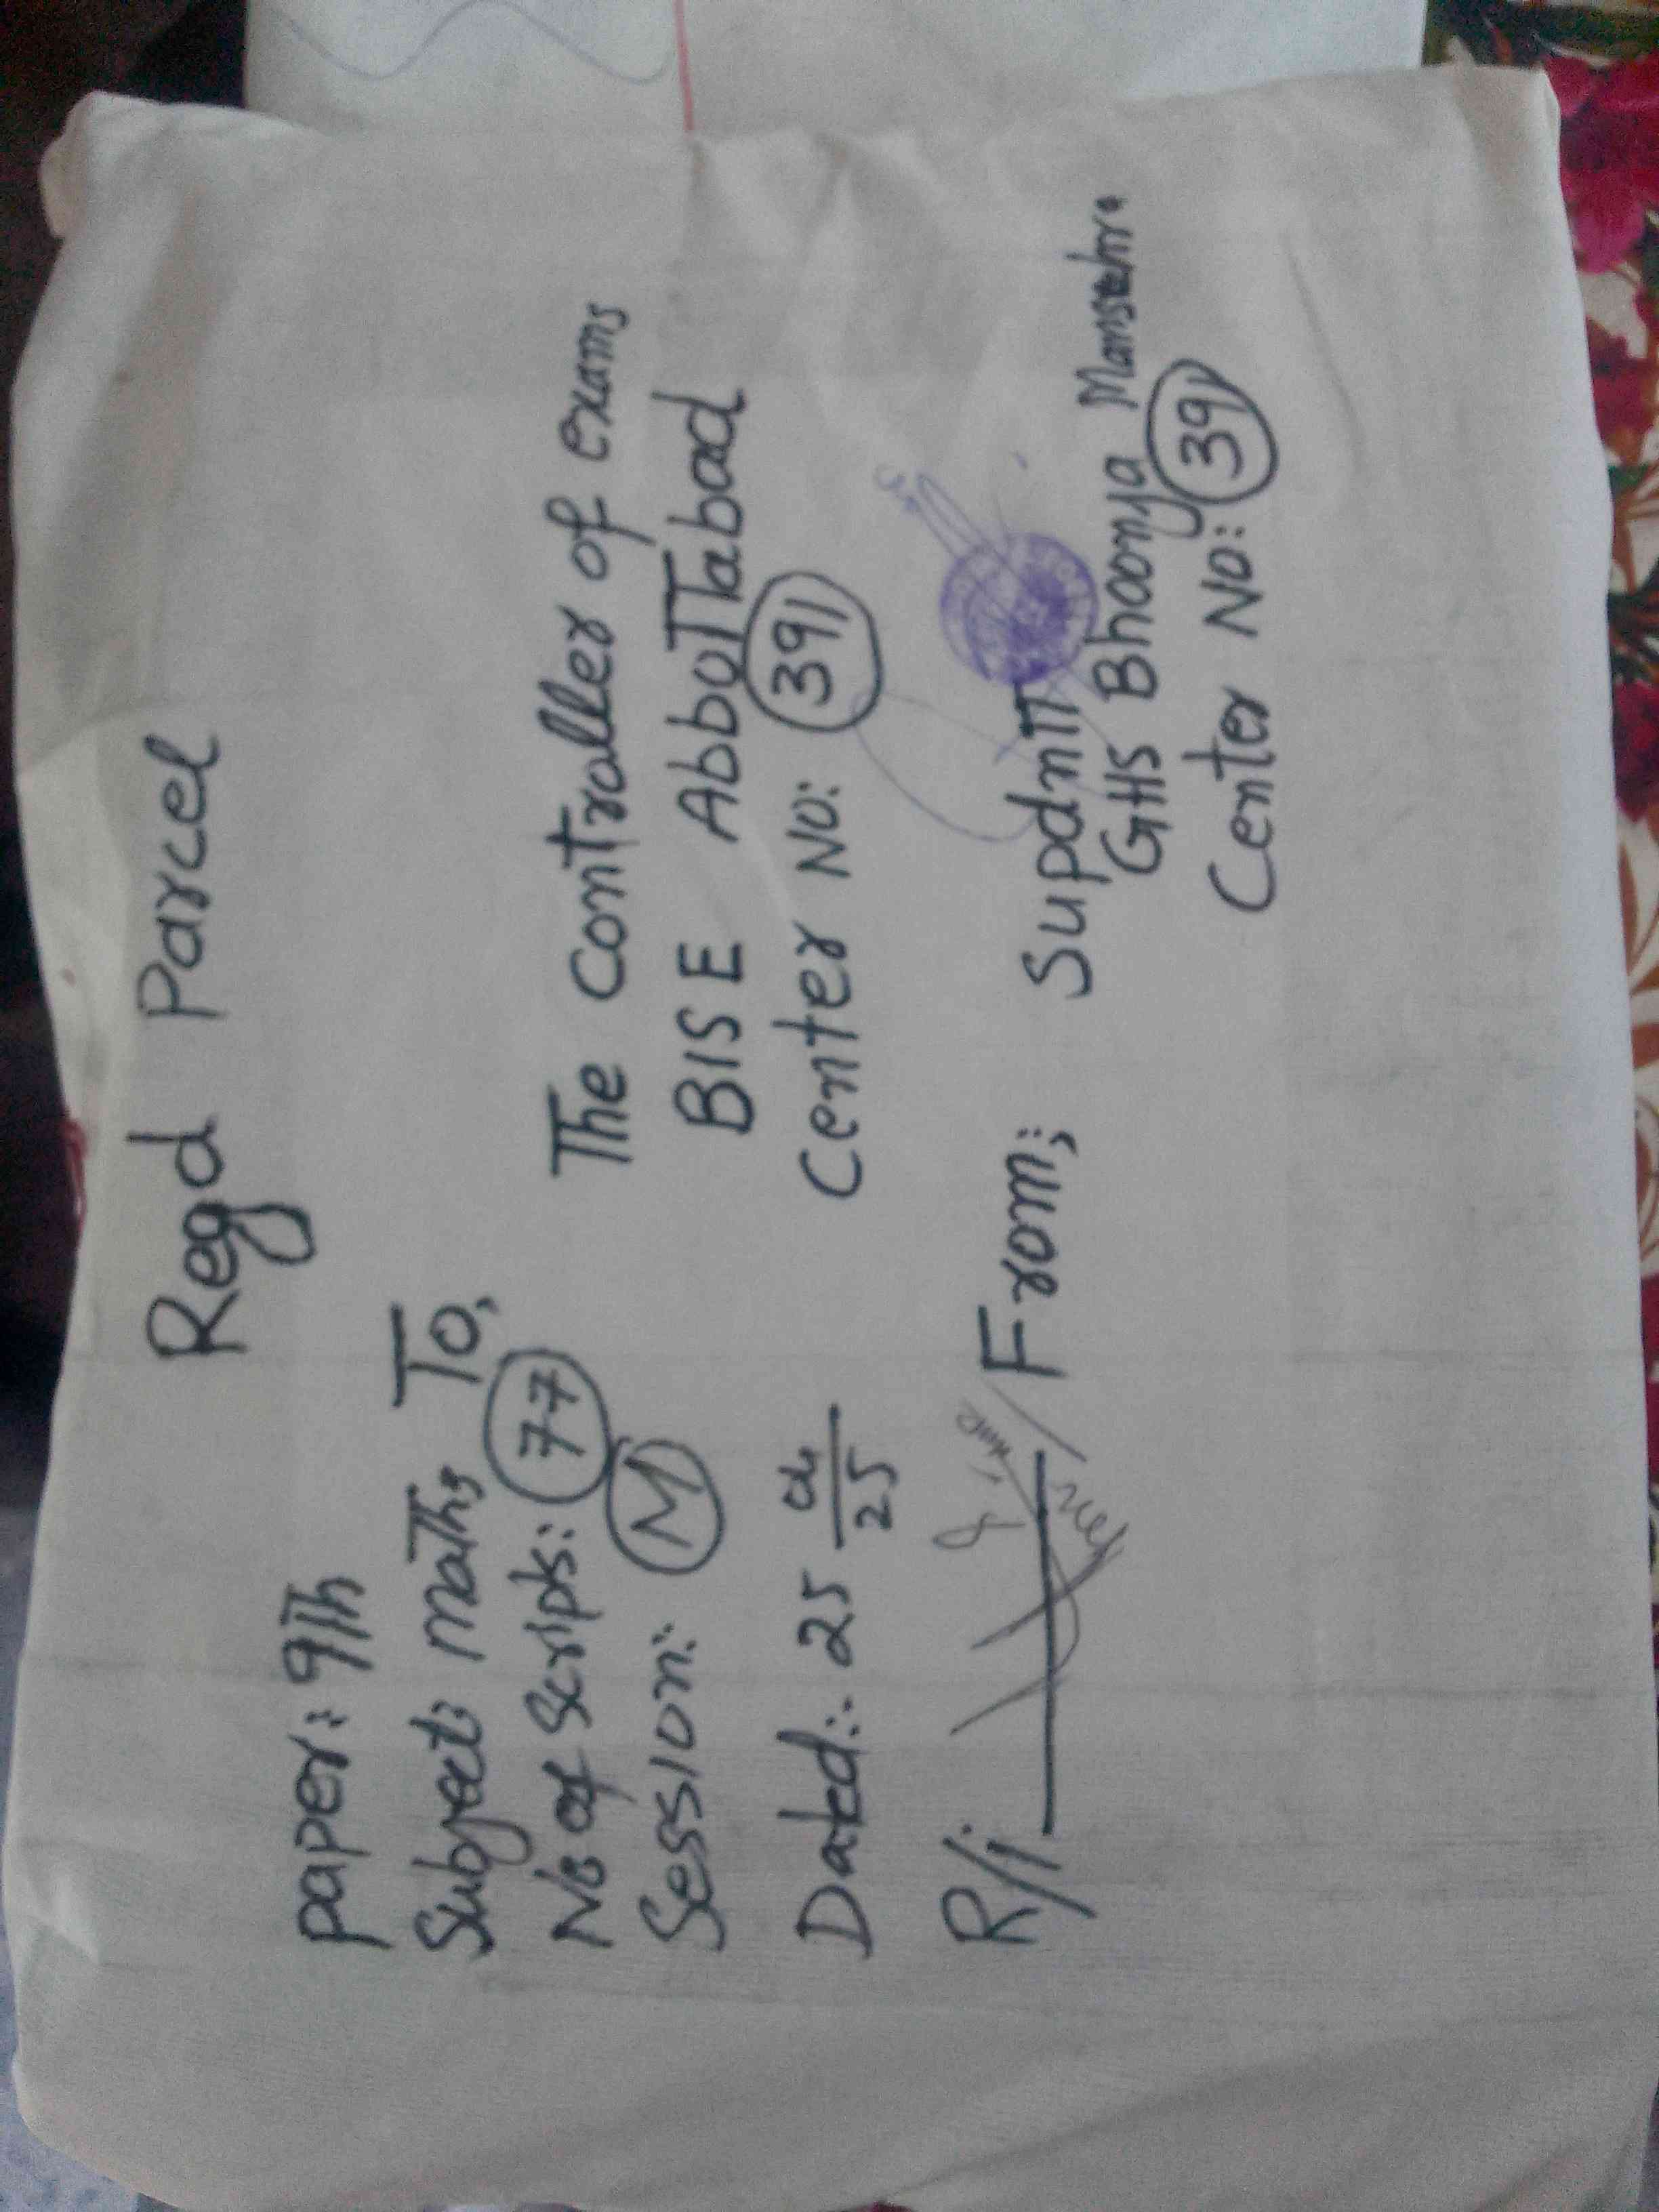 Regd Parcel
paper: 9Th
Subject: maths
No of Scripts: 77
Session: M
Dated: 25 04/25
R/i
To,
The Controller of exams
BISE AbboTTabad
Center No: 391
From;
SupdnTT
GHS Bhoonja Mansehra
Center No: 391